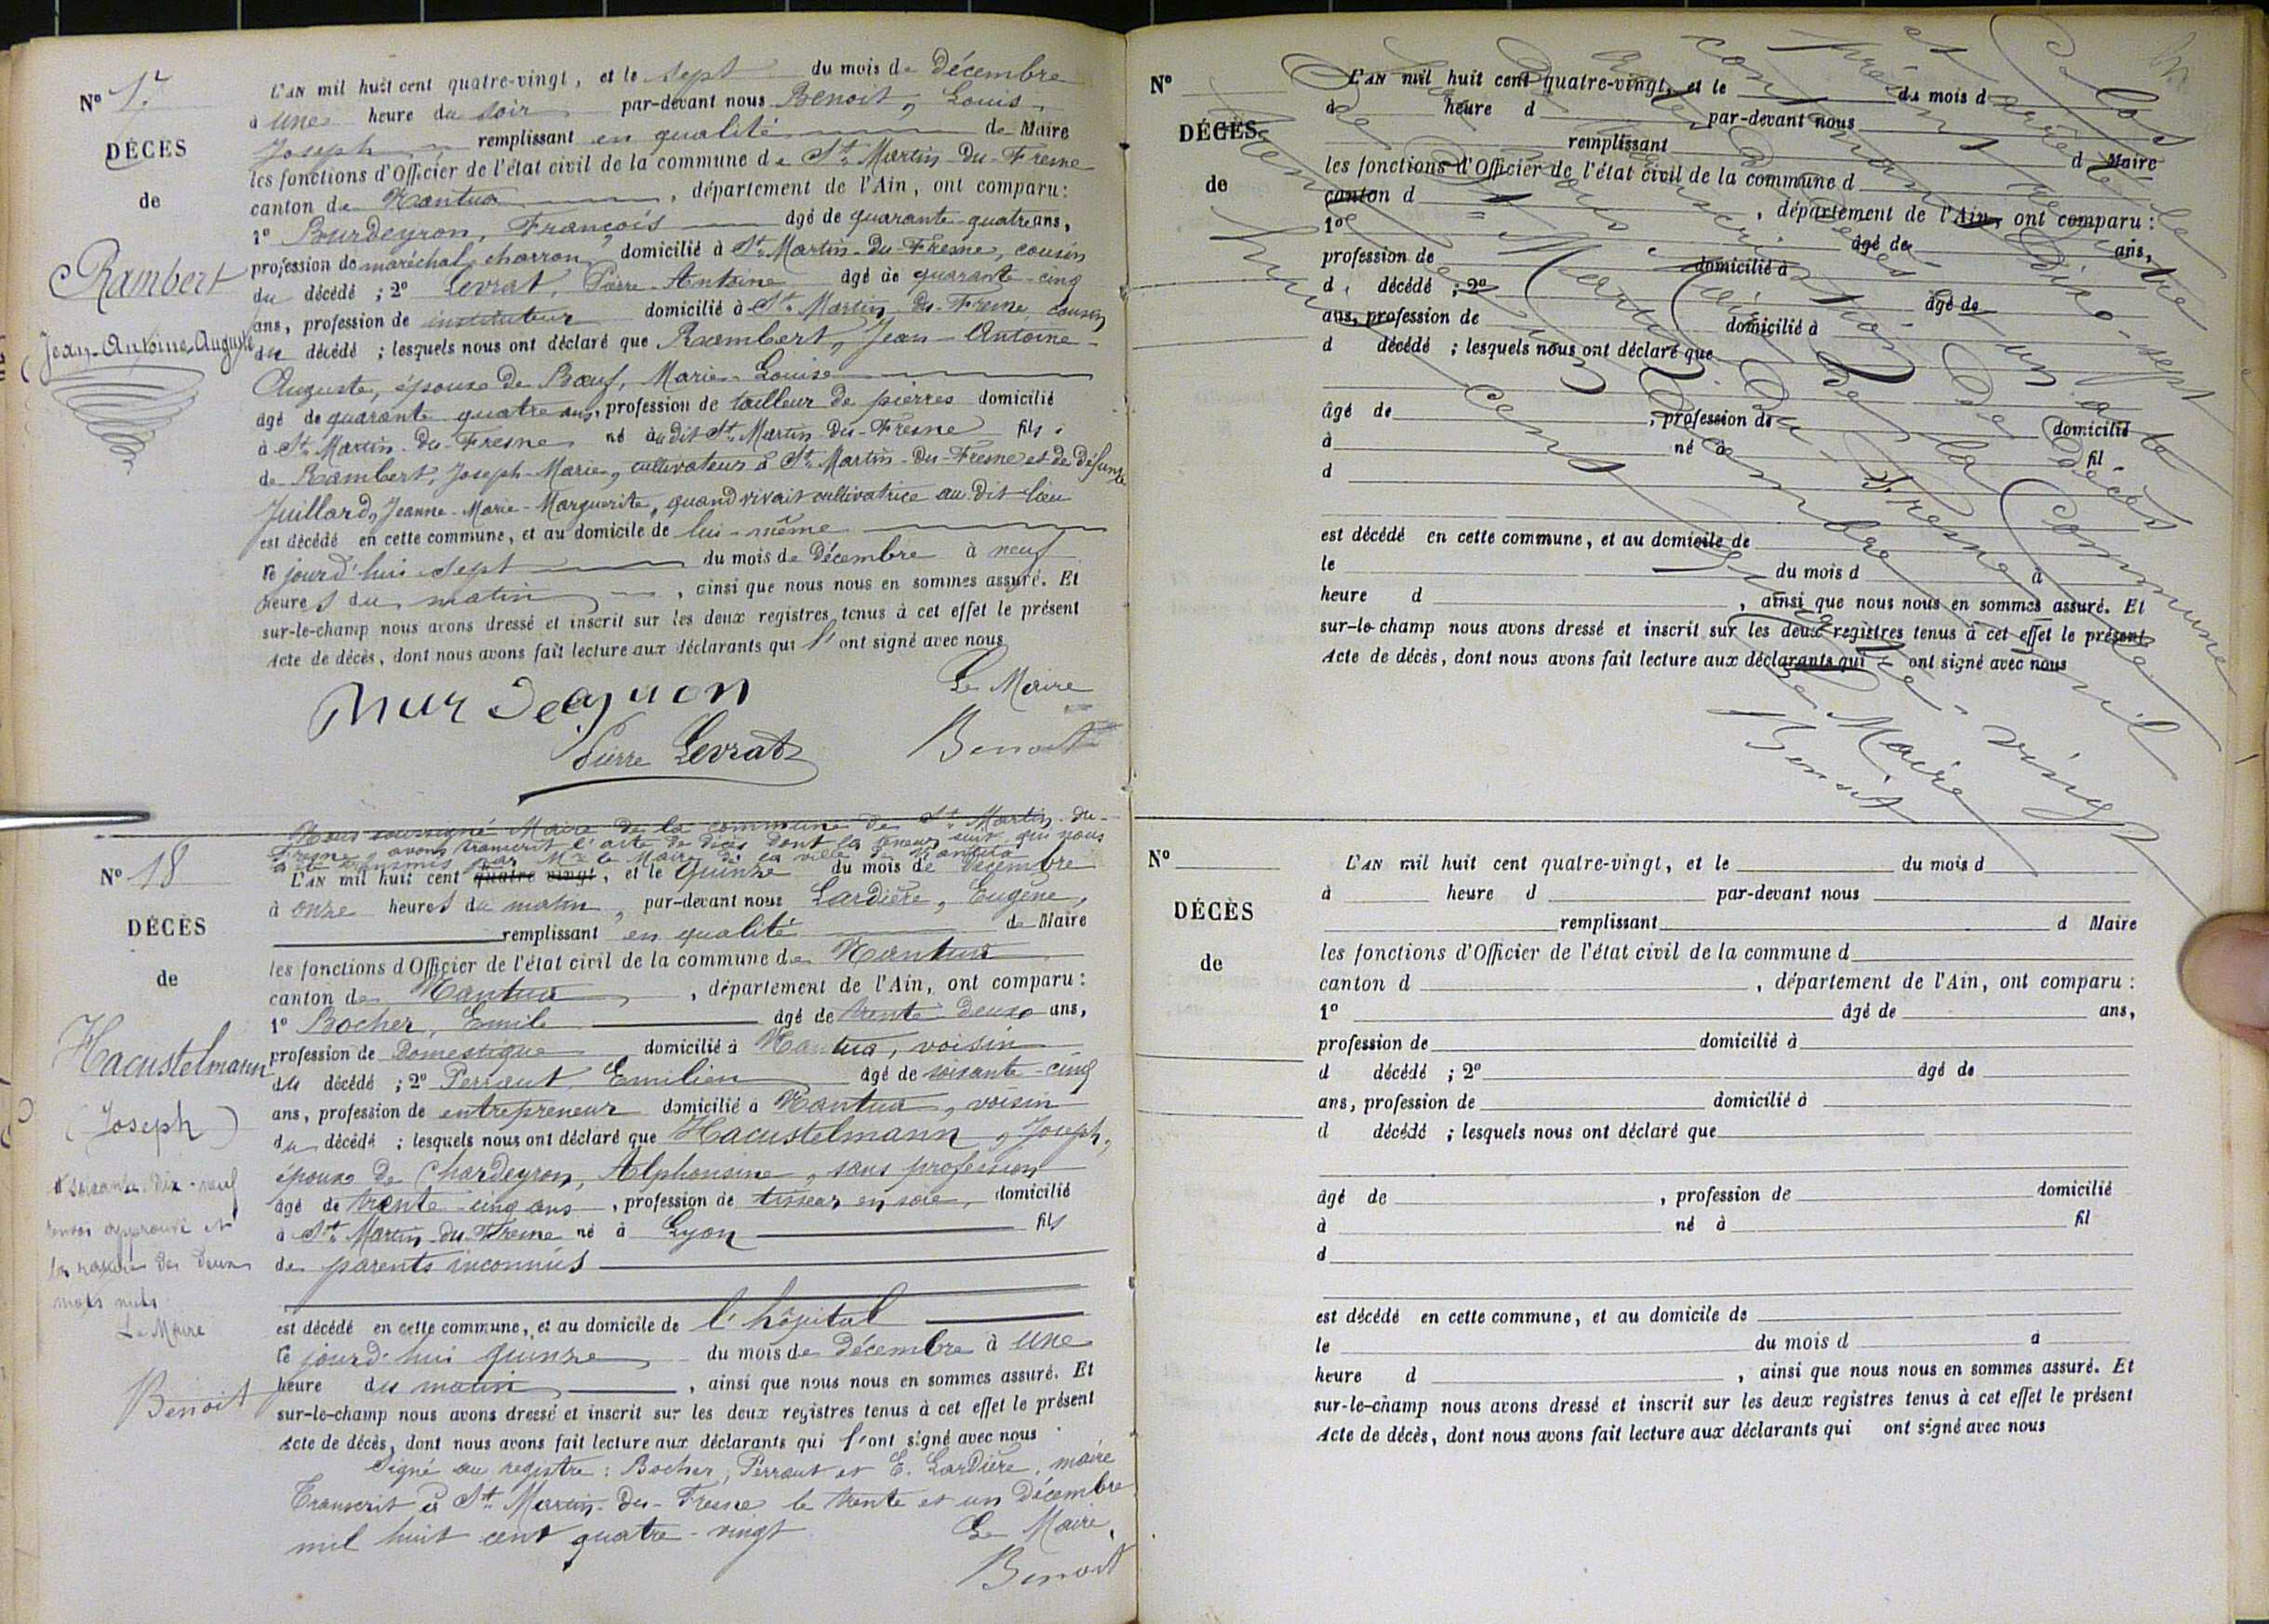 N° 17
DÉCÈS
de
Rambert
Jean-Antoine-Auguste
L'AN mil huit cent quatre-vingt, et le sept du mois de Décembre
à une heure du soir par-devant nous Benoit, Louis-
Joseph remplissant en qualité de Maire
les fonctions d'Officier de l'état civil de la commune de St. Martin-du-Fresne
canton de Nantua, département de l'Ain, ont comparu :
1° Bourdeyron, François âgé de quarante-quatre ans,
profession de maréchal charron, domicilié à St. Martin-du-Fresne, cousin
du décédé ; 2° Levrat, Pierre-Antoine âgé de quarante-cinq
ans, profession de instituteur domicilié à St. Martin-du-Fresne cousin
du décédé ; lesquels nous ont déclaré que Rambert, Jean-Antoine-
Auguste, époux de Bœuf, Marie-Louise
âgé de quarante quatre ans, profession de tailleur de pierres domicilié
à St. Martin-du-Fresne né audit St. Martin-du-Fresne fils
de Rambert, Joseph-Marie, cultivateur à St. Martin-du-Fresne et de défunte
Juillard, Jeanne-Marie-Marguerite, quand vivait cultivatrice au dit lieu
est décédé en cette commune, et au domicile de lui-même
ce jourd'hui sept du mois de Décembre à neuf
heures du matin, ainsi que nous nous en sommes assuré. Et
sur-le-champ nous avons dressé et inscrit sur les deux registres tenus à cet effet le présent
Acte de décès, dont nous avons fait lecture aux déclarants qui l'ont signé avec nous
Le Maire
Pierre Levrat Benoit
N° 18
DÉCÈS
de
Hacustelmann
(Joseph)
soixante-dix-neuf
renvoi approuvé et
la rature des deux
mots nuls
Le Maire
Benoit
Nous soussigné Maire de la commune de St. Martin-du-
Fresne, avons transcrit l'acte de décès dont la teneur suit qui nous
a été transmis par Mr le Maire de la ville de Nantua
L'AN mil huit cent quatre vingt, et le quinze du mois de Décembre
à onze heures du matin, par-devant nous Lardière, Eugène,
remplissant en qualité de Maire
les fonctions d'Officier de l'état civil de la commune de Nantua
canton de Nantua, département de l'Ain, ont comparu :
1° Bocher, Emile âgé de trente-deux ans,
profession de Domestique domicilié à Nantua, voisin
du décédé ; 2° Perraut, Emilien âgé de soixante-cinq
ans, profession de entrepreneur domicilié à Nantua, voisin
du décédé ; lesquels nous ont déclaré que Hacustelmann, Joseph,
époux de Chardeyron, Alphonsine, sans profession
âgé de trente-cinq ans, profession de tisseur en soie, domicilié
à St. Martin-du-Fresne né à Lyon fils
de parents inconnus
est décédé en cette commune, et au domicile de l'hôpital
ce jourd'hui quinze du mois de Décembre à une
heure du matin, ainsi que nous nous en sommes assuré. Et
sur-le-champ nous avons dressé et inscrit sur les deux registres tenus à cet effet le présent
Acte de décès, dont nous avons fait lecture aux déclarants qui l'ont signé avec nous
Signé au registre : Bocher, Perraut et E. Lardière, maire
Transcrit à St. Martin-du-Fresne le trente et un Décembre
mil huit cent quatre-vingt
Le Maire,
Benoit
N°
DÉCÈS
de
L'AN mil huit cent quatre-vingt, et le du mois d
à heure d par-devant nous
remplissant d Maire
les fonctions d'Officier de l'état civil de la commune d
canton d , département de l'Ain, ont comparu :
1° âgé de ans,
profession de domicilié à
d décédé ; 2° âgé de
ans, profession de domicilié à
d décédé ; lesquels nous ont déclaré que
âgé de , profession de domicilié
à né à fil
d
est décédé en cette commune, et au domicile de
le du mois d à
heure d , ainsi que nous nous en sommes assuré. Et
sur-le-champ nous avons dressé et inscrit sur les deux registres tenus à cet effet le présent
Acte de décès, dont nous avons fait lecture aux déclarants qui ont signé avec nous
Clos
et arrêté le
contenant Dix-sept
actes de Décès
de la Commune
de St. Martin-du-Fresne
Décembre
mil huit cent quatre-vingt
Le Maire
Benoit
N°
DÉCÈS
de
L'AN mil huit cent quatre-vingt, et le du mois d
à heure d par-devant nous
remplissant d Maire
les fonctions d'Officier de l'état civil de la commune d
canton d , département de l'Ain, ont comparu :
1° âgé de ans,
profession de domicilié à
d décédé ; 2° âgé de
ans, profession de domicilié à
d décédé ; lesquels nous ont déclaré que
âgé de , profession de domicilié
à né à fil
d
est décédé en cette commune, et au domicile de
le du mois d à
heure d , ainsi que nous nous en sommes assuré. Et
sur-le-champ nous avons dressé et inscrit sur les deux registres tenus à cet effet le présent
Acte de décès, dont nous avons fait lecture aux déclarants qui ont signé avec nous